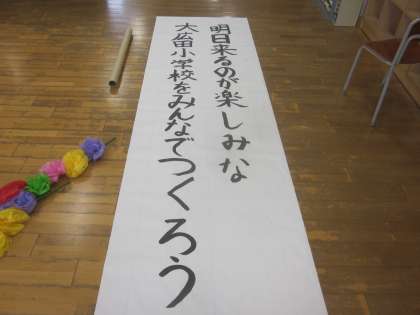 明日来るのが楽しみな
大広田小学校をみんなでつくろう